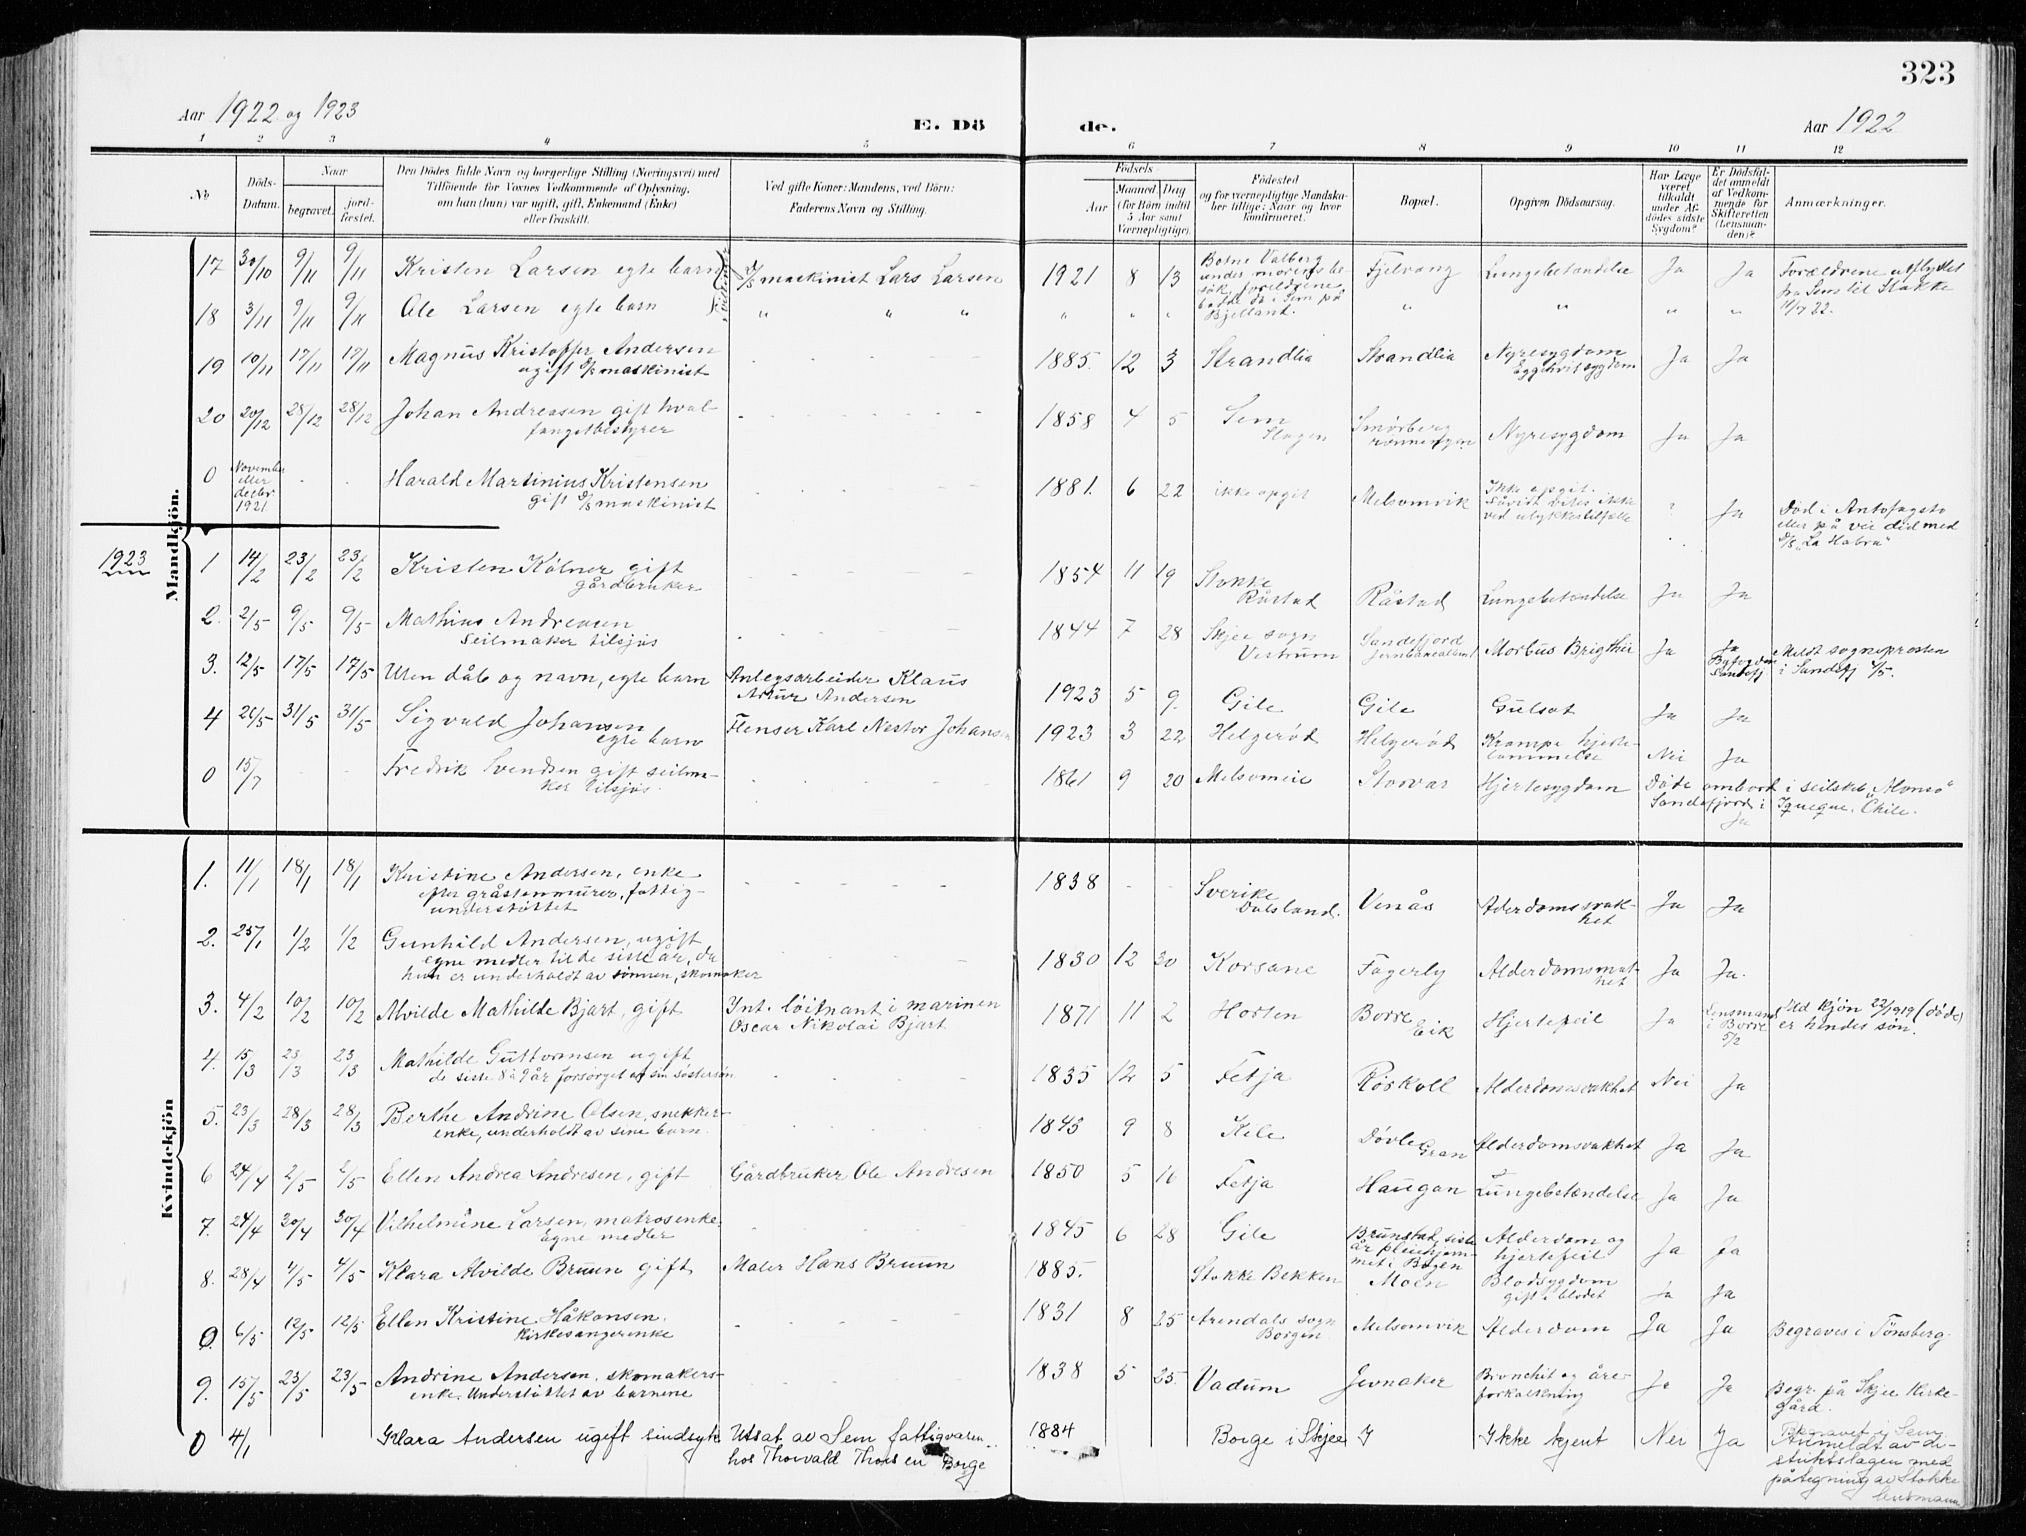 323
Aar 1922 og 1923
E. Dö de.
Aar 1922
1 2 3 4 5 6 7 8 9 10 11 12
No.
Döds-Datum.
Naar
begravet.
jord-fæstet.
Den Dödes fulde Navn og borgerlige Stilling (Næringsvei) med
Tilföiende for Voxnes Vedkommende af Oplysning,
om han (hun) var ugift, gift, Enkemand (Enke)
eller fraskilt.
Ved gifte Koner: Mandens, ved Börn:
Faderens Navn og Stilling.
Födsels-
Aar
Maaned. Dag
(for Börn indtil
5 Aar samt
Værnepligtige).
Födested
og for værnepligtige Mandska-
ber tillige: Naar og hvor
konfirmeret.
Bopæl.
Opgiven Dödsaarsag.
Har Læge
været
tilkaldt
under Af-
dödes sidste
Sygdom?
Er Dödsfal-
det anmeldt
af Vedkom-
mende for
Skifteretten
(Lensman-
den)?
Anmærkninger.
Mandkjön.
17 30/10 9/11 9/11 Kristen Larsen egte barn D/S maskinist Lars Larsen 1921 8 13 Botne Valberg under morens be-søk, foreldrene bodde da i Sem på Bjelland. Fjelvang Lungebetændelse Ja Ja Forældrene utflyttet fra Sem til Stokke
18 3/11 9/11 9/11 Ole Larsen egte barn tvillinger " " " " " " " " " " "
19 10/11 17/11 17/11 Magnus Kristoffer Andersen
ugift D/S maskinist 1885. 12 3 Strandlia Strandlia Nyresygdom Eggehvitsygdom Ja Ja
20 20/12 28/12 28/12 Johan Andreasen gift hval-
fangstbestyrer 1858 4 5 Sem Slagen Smørberg rønningen Nyresygdom Ja Ja
0 November eller decbr. 1921 Harald Martinius Kristensen
gift D/S maskinist 1881. 6 22 ikke opgit Melsomvik Ikke opgit. Såvidt vites ikke ved ulykkestilfælle ? Ja Død i Antofagsto eller på vei did med D/S "La Habra"
1923
1 14/2 23/2 23/2 Kristen Kølner gift
gårdbruker 1854 11 19 Stokke Råstad Råstad Lungebetændelse Ja Ja
2. 2/5 9/5 9/5 Mathias Andreasen
Seilmaker tilsjøs 1844 7 28 Skjee sogn Vestrum Sandefjord Morbus Brigthii Ja Ja Meldt sogneprosten i Sandefj
3. 12/5 17/5 17/5 Uten dåb og navn, egte barn Anlegsarbeider Klaus
Artur Andersen 1923 5 9. Gile Gile Gulsot Ja Ja
4 26/5 31/5 31/5 Sigvald Johansen
egte barn Flenser Karl Nestor Johansen 1923 3 22 Helgerød Helgerød Krampe hjerte-lammelse Nei Ja
0 15/7 Fredrik Svendsen gift seilma-
ker tilsjøs. 1861 9 20 Melsomvie Storvar Hjertesygdom Døde ombord i seilskib "Alonso"
Sandefjord i Iqueque, Chile.
Ja
Kvindekjön
1. 11/1 18/1 18/1 Kristine Andersen, enke
efter gråstenmurer, fattig-
understøttet 1838 Sverike Dalsland. Venås Alderdomssvak-het Ja Ja
2. 25/1 1/2 1/2 Gunhild Andersen, ugift,
egne medler til de siste år, da
hun er underholdt av sønnen, skomaker 1830 12 20 Korsane Fagerly Alderdomssvak-het Ja Ja.
3. 4/2 10/2 10/2 Alvilde Mathilde Bjart, gift Int. løitnant i marinen
Oscar Nikolai Bjart 1871 11 2 Horten Borre Eik Hjertefeil Ja Lensmand i Borre 5/2 Md kjøn 22/1919 (døde) er hendes søn.
4. 15/3 23/3 23/3 Mathilde Guttormsen ugift
de siste 8 à 9 år forsørget av sin søstersøn 1835 12 5 Fetja Røskoll Alderdomsvakhet Nei Ja
5. 23/3 28/3 28/3 Berthe Andrine Olsen, snekker-
enke, underholdt av sine barn. 1843 9 8 Kile Døvle Gran Alderdomsvakhet Ja Ja
6 24/4 2/5 2/5 Ellen Andrea Andresen, gift Gårdbruker Ole Andresen 1850 5 16 Fetja Haugan Lungebetændelse Ja Ja
7. 24/4 30/4 30/4 Vilhelmine Larsen, matrosenke.
Egne medler 1845 6 28 Gile Brunstad, siste år pleiehjem-met i Bogen Alderdom og hjertefeil Ja Ja
8. 28/4 4/5 4/5 Klara Alvilde Bruun gift Maler Hans Bruun 1885. Stokke Bekken Moen Blodsygdom gift i blodet Ja Ja
0. 6/5 12/5 12/5 Ellen Kristine Håkonsen,
kirkesangerenke 1831 8 25 Arendals sogn Borgen Melsomvik Alderdom Ja Ja Begraves i Tønsberg.
9. 15/5 23/5 23/5 Andrine Andersen, skomakers-
enke. Understøttet av barnene 1838 5 25 Vadum Jevnaker Bronchit og åre-forkalkning Ja Ja Begr. på Skjee kirke-gård.
0 4/1 Klara Andersen ugift sindsyk Utsat av Sem fattigvæsen
hos Thorvald Thorsen Borge 1884 Borge i Skjee Ikke kjent Nei Ja Begravet i Sem
Anmeldt av di-
striktslægen med
påtegning av Stokke
lensmann